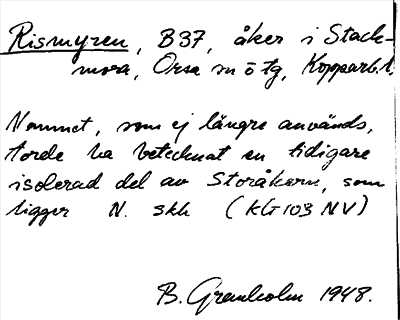 Rismyren, B37, åker i Stack-
mora, Orsa sn ö tg, Kopparb. l.
Namnet, som ej längre används,
torde ha betecknat en tidigare
isolerad del av Storåkern, som
ligger N. skh (kG 103 NV)
B. Granholm 1948.